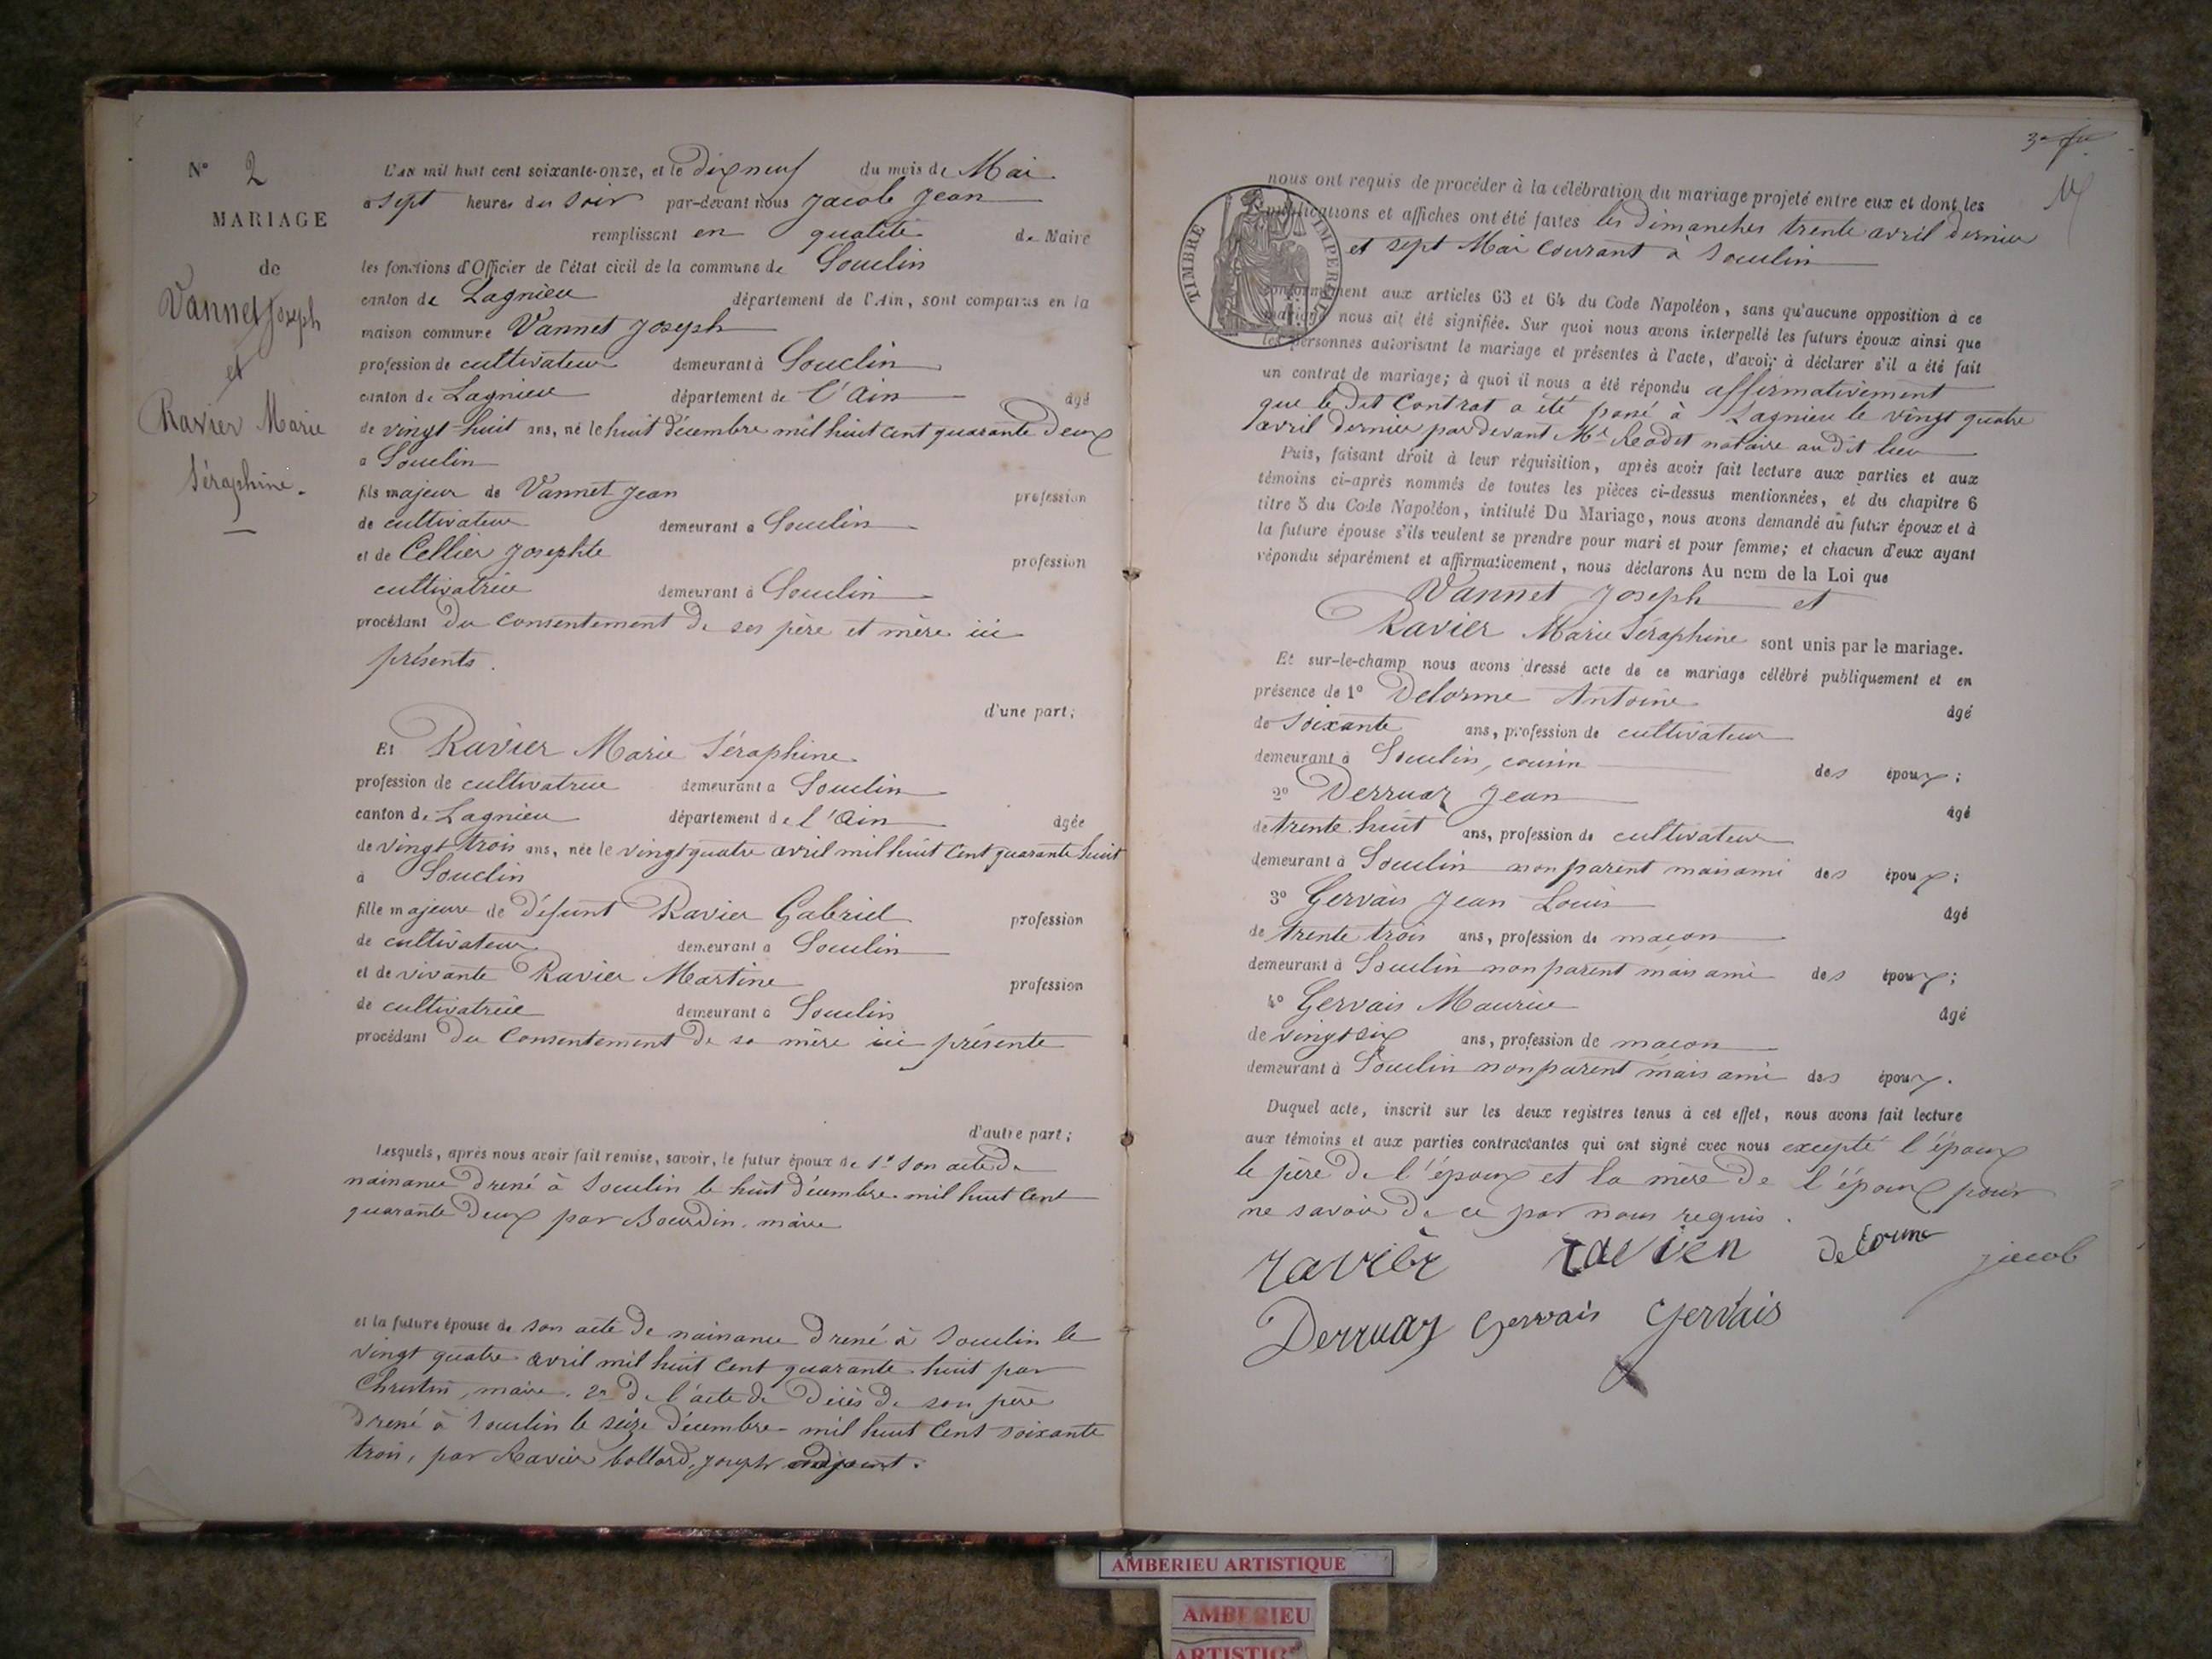 N° 2
MARIAGE
de
Vannet Joseph
et
Ravier Marie
Séraphine.
L'AN mil huit cent soixante-onze, et le dix neuf du mois de Mai
à sept heures du soir par-devant nous Jacob Jean
remplissant en qualité de Maire
les fonctions d'Officier de l'état civil de la commune de Souclin
canton de Lagnieu département de l'Ain, sont comparus en la
maison commune Vannet Joseph
profession de cultivateur demeurant à Souclin
canton de Lagnieu département de l'Ain âgé
de vingt-huit ans, né le huit décembre mil huit cent quarante deux
à Souclin
fils majeur de Vannet Jean profession
de cultivateur demeurant à Souclin
et de Cellier Josephte profession
cultivatrice demeurant à Souclin
procédant du consentement de ses père et mère ici
présents.
d'une part;
Et Ravier Marie Séraphine
profession de cultivatrice demeurant à Souclin
canton de Lagnieu département de l'Ain âgée
de vingt trois ans, née le vingt quatre avril mil huit cent quarante huit
à Souclin
fille majeure de défunt Ravier Gabriel profession
de cultivateur demeurant à Souclin
et de vivante Ravier Martine profession
de cultivatrice demeurant à Souclin
procédant du consentement de sa mère ici présente
d'autre part;
Lesquels, après nous avoir fait remise, savoir, le futur époux de 1° son acte de
naissance dressé à Souclin le huit décembre mil huit cent
quarante deux par Bourdin, maire
et la future épouse de son acte de naissance dressé à Souclin le
vingt quatre avril mil huit cent quarante huit par
Christin, maire. 2° de l'acte de décès de son père
dressé à Souclin le seize décembre mil huit cent soixante
trois, par Ravier bollard, Joseph adjoint.
nous ont requis de procéder à la célébration du mariage projeté entre eux et dont les
publications et affiches ont été faites les dimanches trente avril dernier
et sept Mai courant à Souclin
TIMBRE IMPERIAL
conformément aux articles 63 et 64 du Code Napoléon, sans qu'aucune opposition à ce
mariage nous ait été signifiée. Sur quoi nous avons interpellé les futurs époux ainsi que
les personnes autorisant le mariage et présentes à l'acte, d'avoir à déclarer s'il a été fait
un contrat de mariage; à quoi il nous a été répondu affirmativement
que le dit Contrat a été passé à Lagnieu le vingt quatre
avril dernier par devant Me notaire au dit lieu
Puis, faisant droit à leur réquisition, après avoir fait lecture aux parties et aux
témoins ci-après nommés de toutes les pièces ci-dessus mentionnées, et du chapitre 6
titre 5 du Code Napoléon, intitulé Du Mariage, nous avons demandé au futur époux et à
la future épouse s'ils veulent se prendre pour mari et pour femme; et chacun d'eux ayant
répondu séparément et affirmativement, nous déclarons Au nom de la Loi que
Vannet Joseph et
Ravier Marie Séraphine sont unis par le mariage.
Et sur-le-champ nous avons dressé acte de ce mariage célébré publiquement et en
présence de 1° Delorme Antoine âgé
de soixante ans, profession de cultivateur
demeurant à Souclin, cousin des époux;
2° Derruaz Jean âgé
de trente huit ans, profession de cultivateur
demeurant à Souclin non parent mais ami des époux;
3° Gervais Jean Louis âgé
de trente trois ans, profession de maçon
demeurant à Souclin non parent mais ami des époux;
4° Gervais Maurice âgé
de vingt six ans, profession de maçon
demeurant à Souclin non parent mais ami des époux.
Duquel acte, inscrit sur les deux registres tenus à cet effet, nous avons fait lecture
aux témoins et aux parties contractantes qui ont signé avec nous excepté l'époux
le père de l'époux et la mère de l'époux pour
ne savoir de ce par nous requis.
ravier ravier Delorme jacob
Derruaz Gervais Gervais
AMBERIEU ARTISTIQUE
AMBERIEU
ARTISTIQ